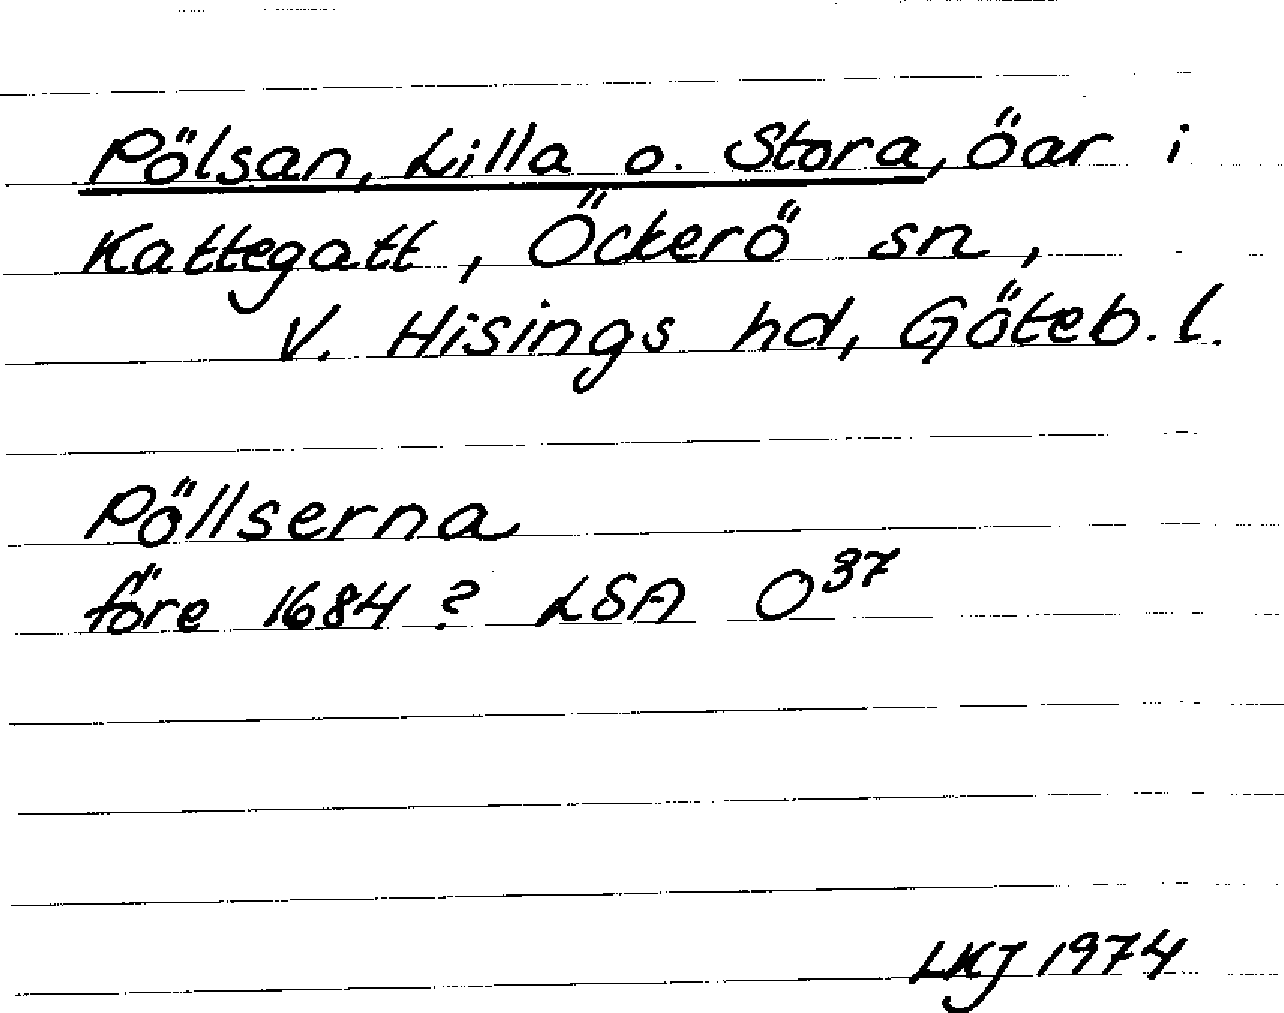 Pölsan, Lilla o. Stora, öar i
Kattegatt, Öckerö sn,
V. Hisings hd, Göteb. l.
Pöllserna
före 1684? LSA O37
LKJ 1974